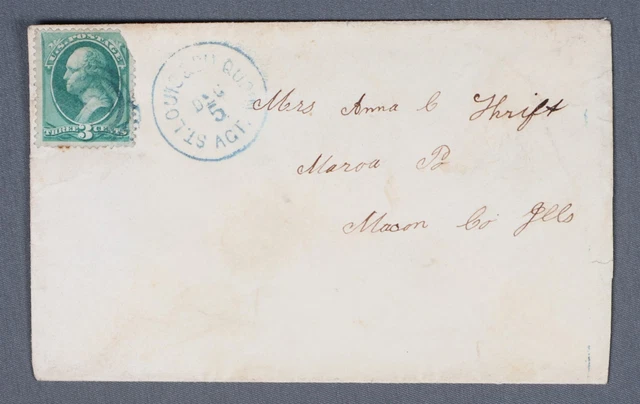 U.S. POSTAGE
THREE 3 CENTS
ST. LOUIS
AGT.
5
Mrs Anna C Thrift
Maroa P
Macon Co Ills